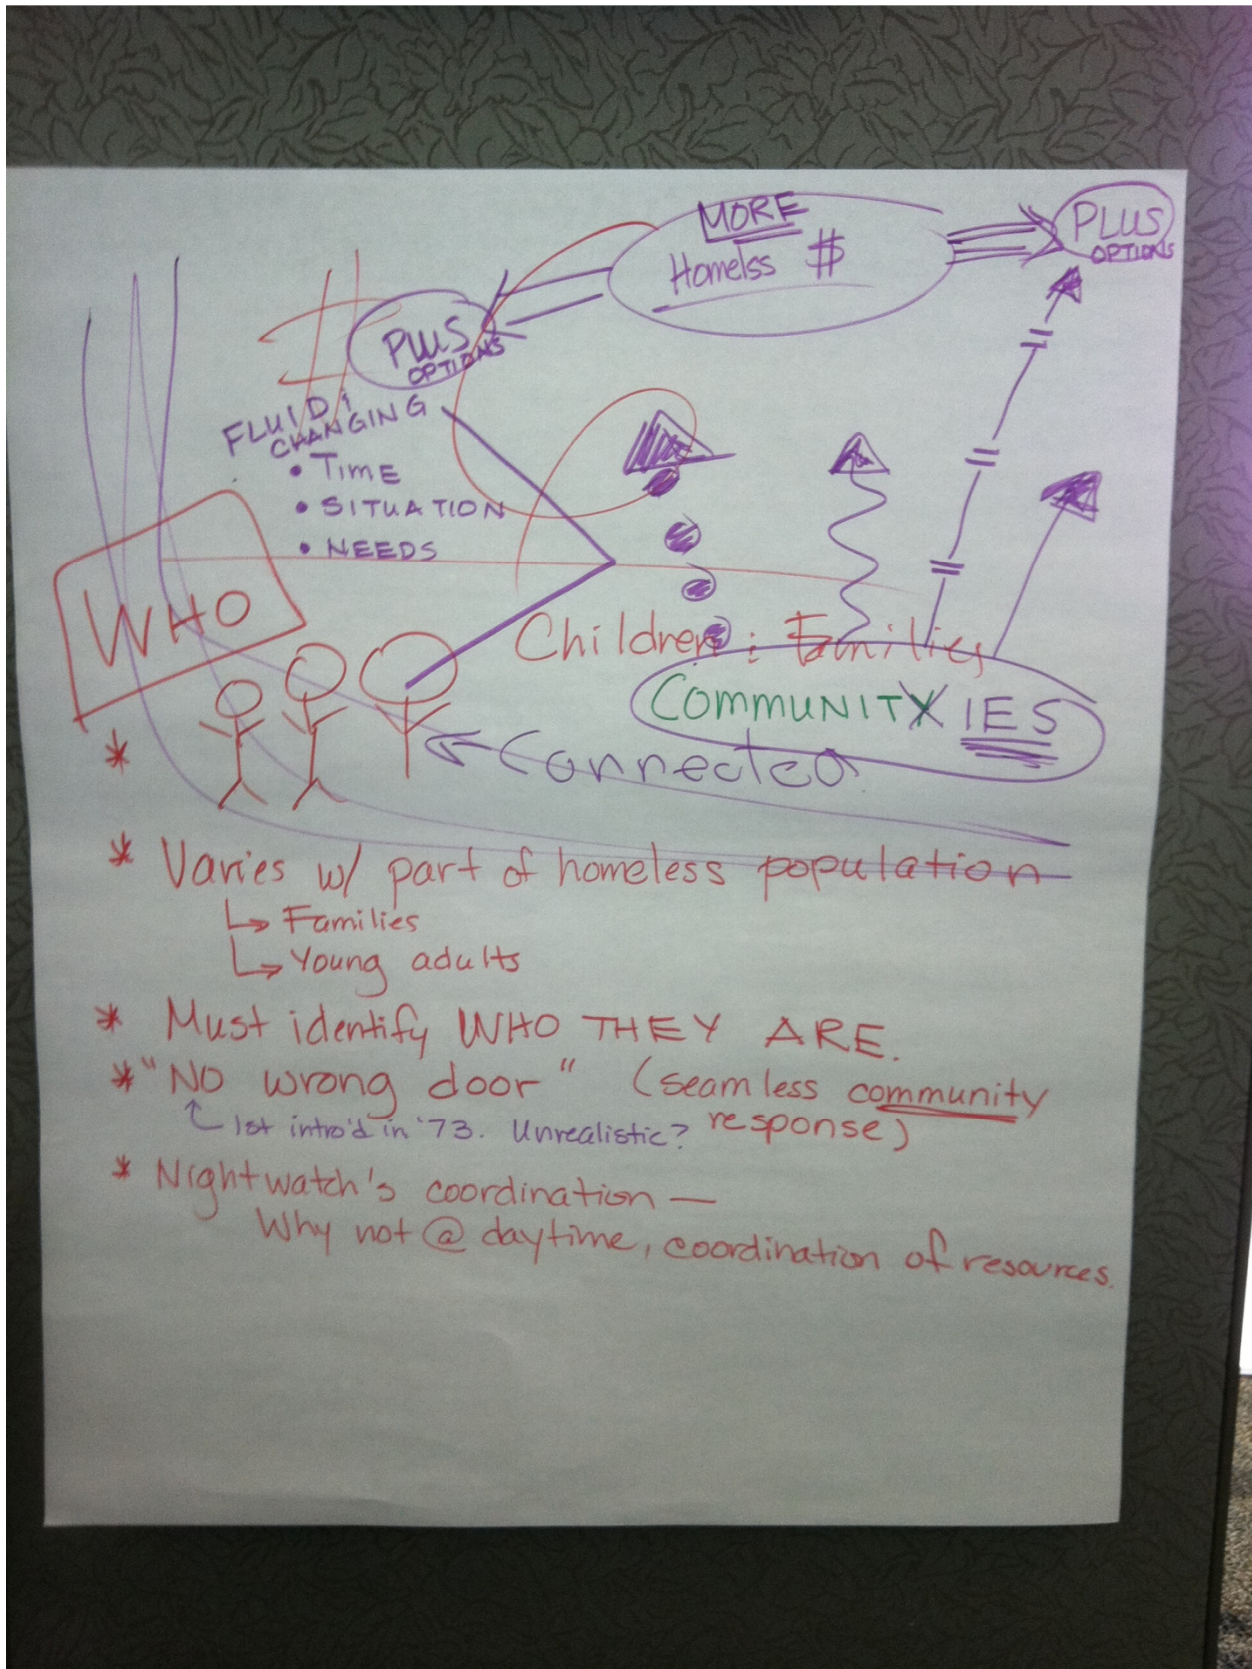 MORE
Homelss $
PLUS
OPTIONS
PLUS
OPTIONS
FLUID &
CHANGING
• TIME
• SITUATION
• NEEDS
WHO
Children & Families
COMMUNITY IES
Connected
*
* Varies w/ part of homeless population
↳ Families
↳ Young adults
* Must identify WHO THEY ARE.
* "NO wrong door" (seamless community
response)
1st intro'd in '73. Unrealistic?
* Nightwatch's coordination —
Why not @ daytime, coordination of resources.